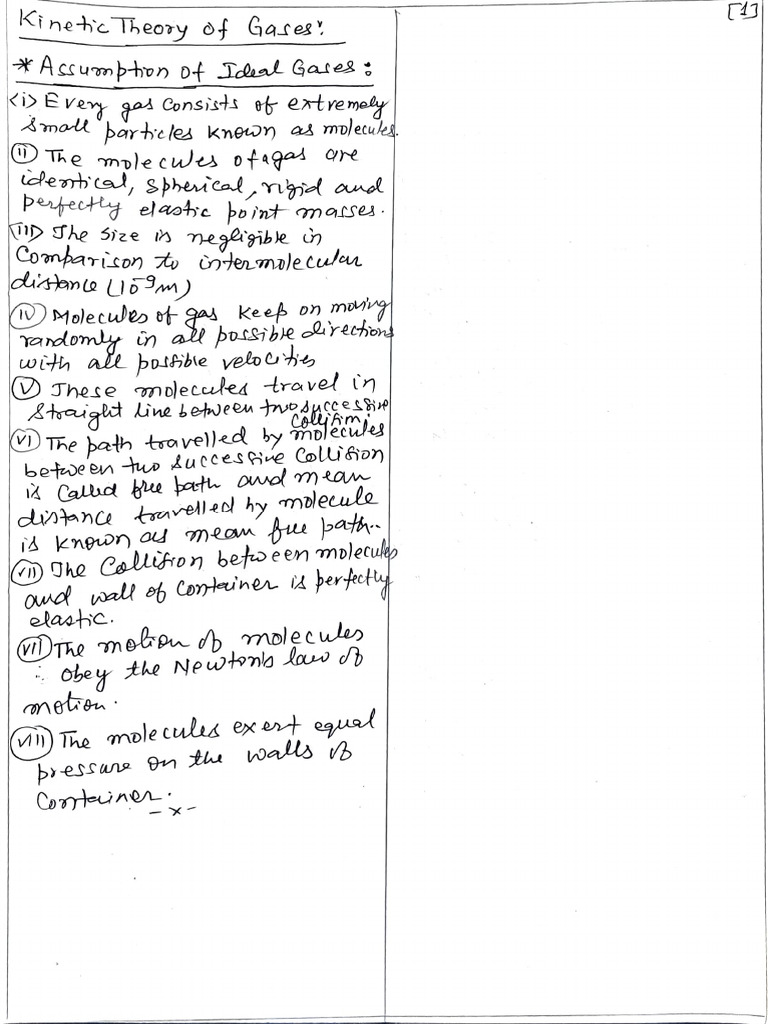 Kinetic Theory of Gases:
[1]
* Assumption of Ideal Gases:
(i) Every gas consists of extremely
small particles known as molecules.
(ii) The molecules of a gas are
identical, spherical, rigid and
perfectly elastic point masses.
(iii) The size is negligible in
Comparison to intermolecular
distance (10⁻⁹m)
(iv) Molecules of gas keep on moving
randomly in all possible directions
with all possible velocities
(v) These molecules travel in
straight line between two successive
collision.
(vi) The path travelled by molecules
between two successive collision
is called free path and mean
distance travelled by molecule
is known as mean free path..
(vii) The Collision between molecules
and wall of container is perfectly
elastic.
(vii) The motion of molecules
obey the Newton's law of
motion.
(viii) The molecules exert equal
pressure on the walls of
Container.
-x-